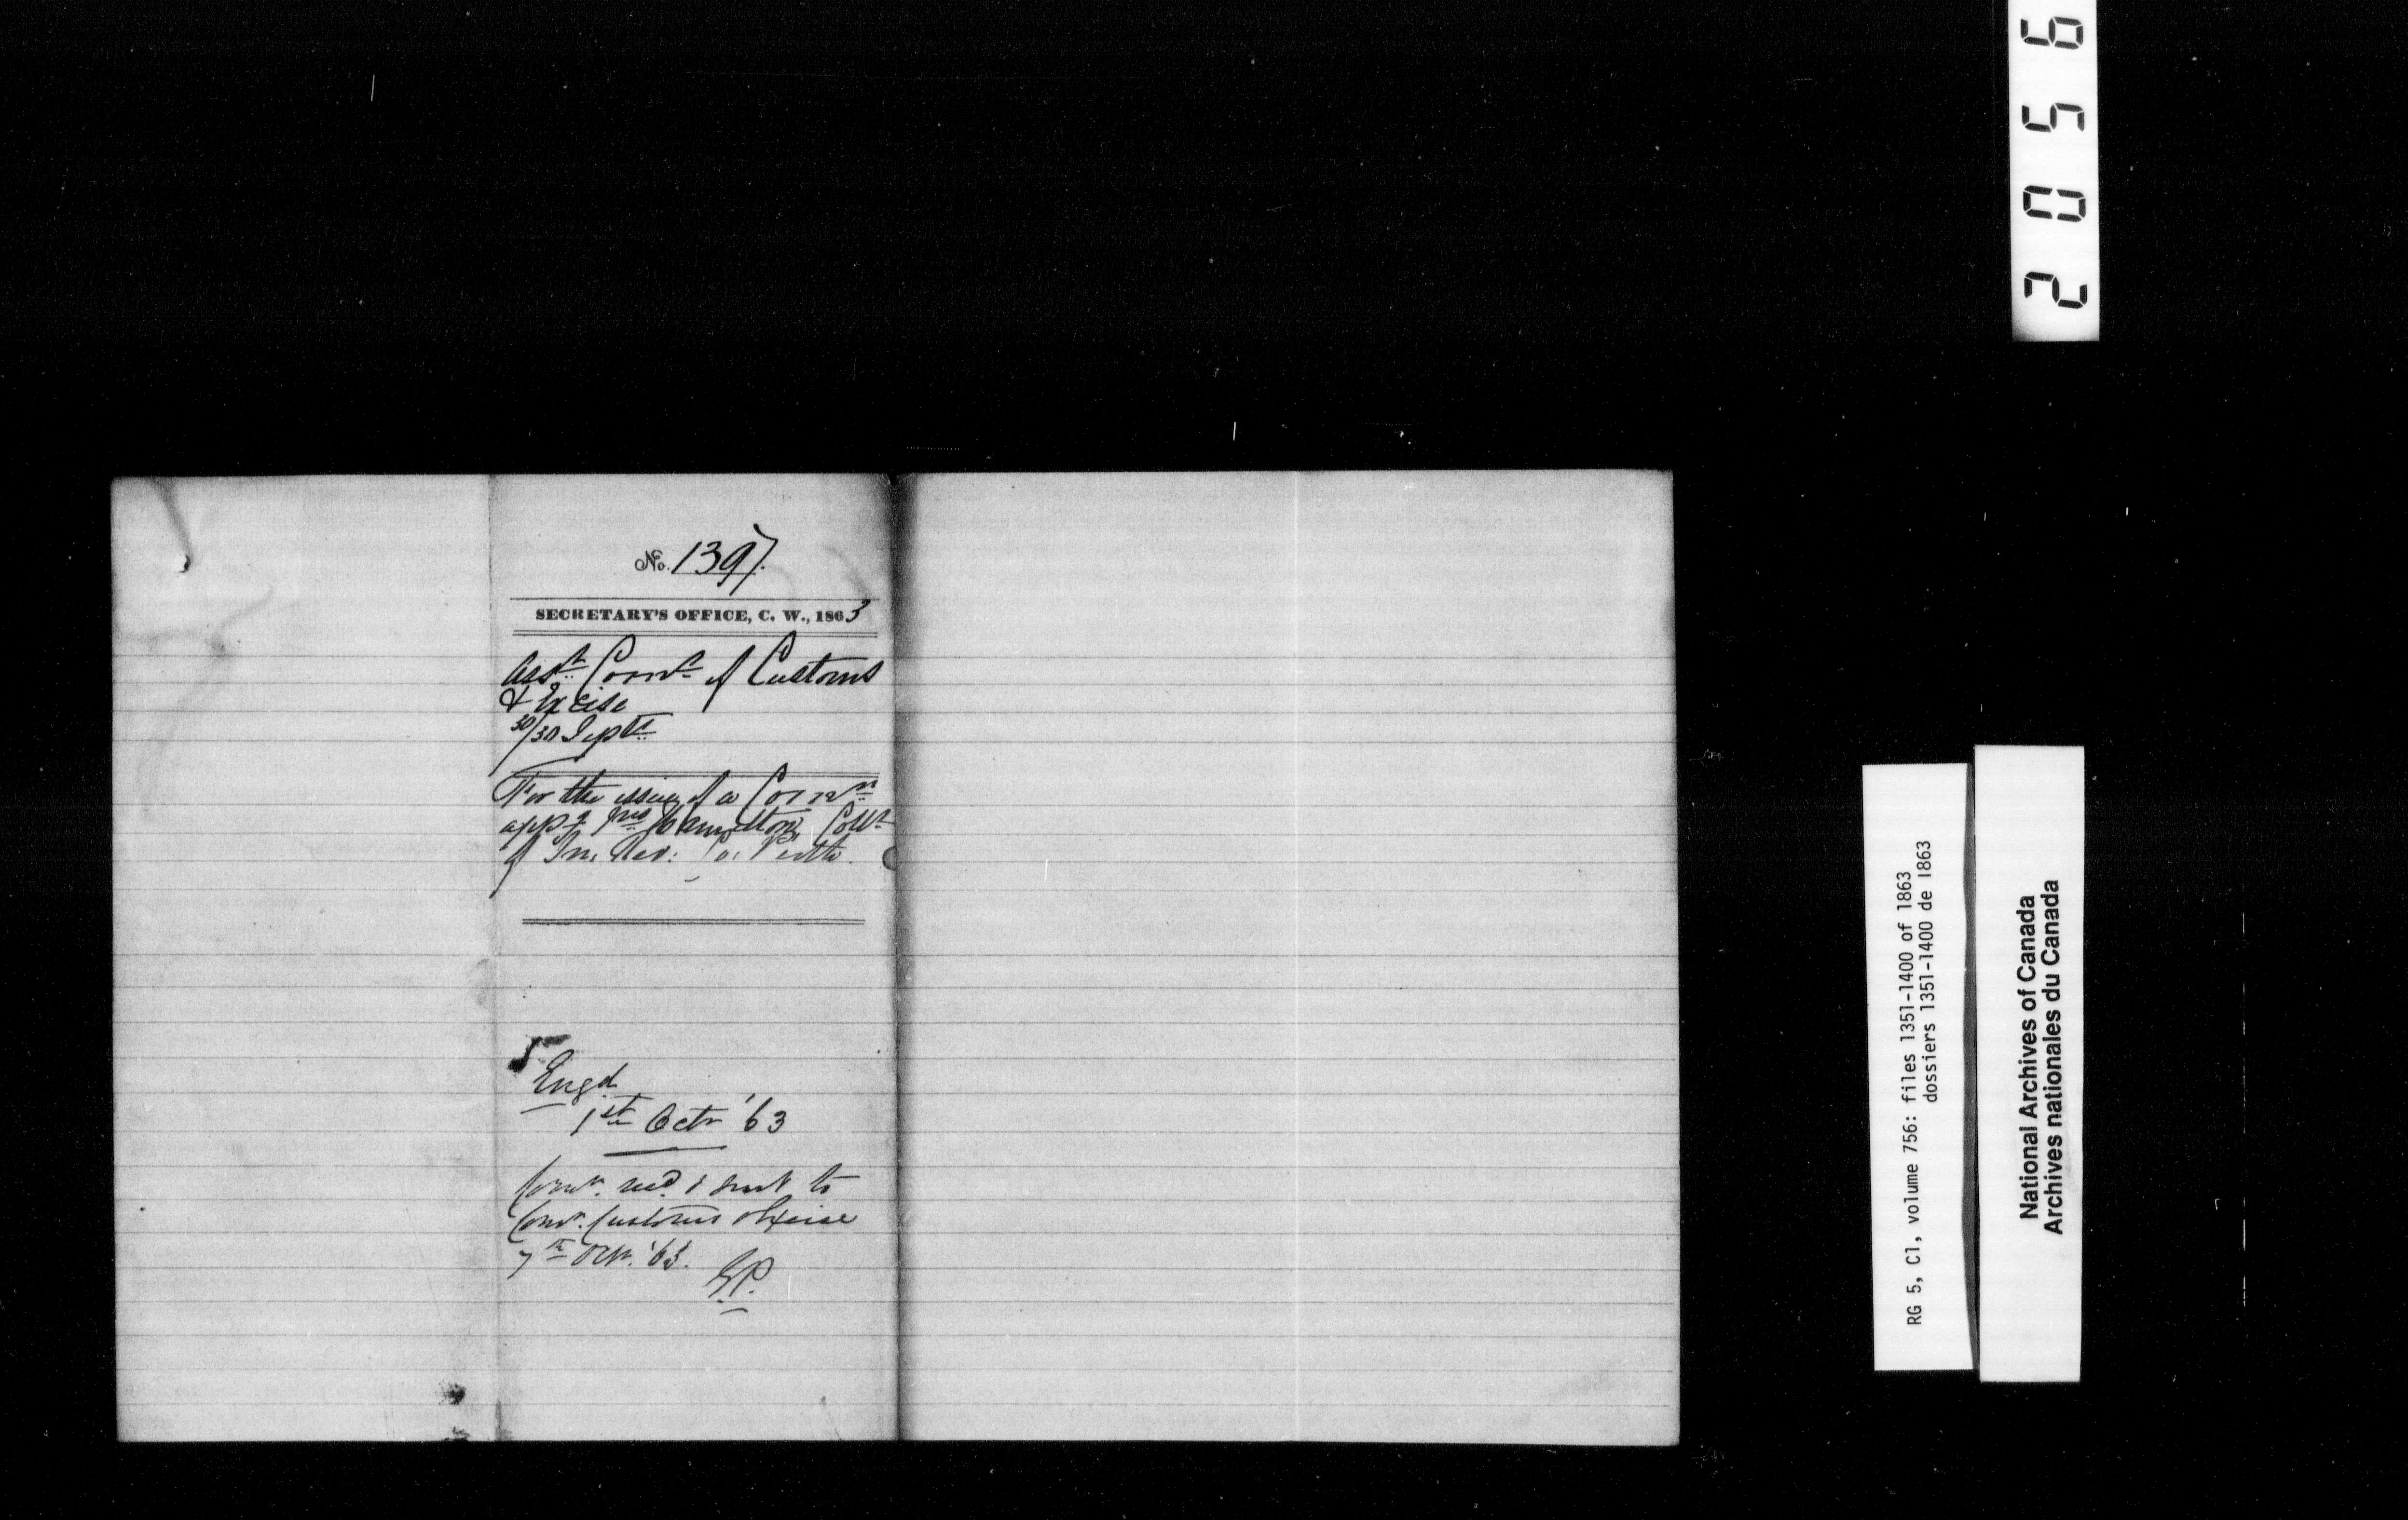 No. 1397.
SECRETARY'S OFFICE, C. W., 1863
Asst. Comr. of Customs
& Excise
30/30 Septr.
For the issue of a Commn
appg. Jno. Hamilton, Collr
of In. Rev: Co: Perth.
Engd.
1st Octr '63
Comn. recd. & sent to
Comr. Customs & Excise
7th Octr. '63.
G.P.
2056
RG 5, C1, volume 756: files 1351-1400 of 1863
dossiers 1351-1400 de 1863
National Archives of Canada
Archives nationales du Canada